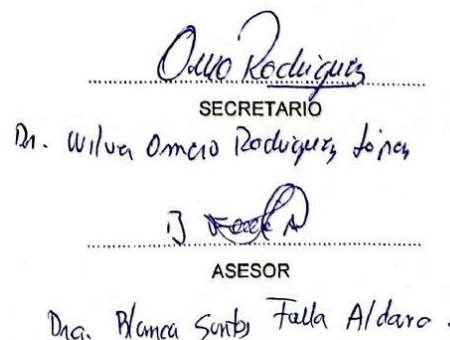 Omero Rodriguez
SECRETARIO
Dr. Wilver Omero Rodriguez López
ASESOR
Dra. Blanca Santos Falla Aldana.